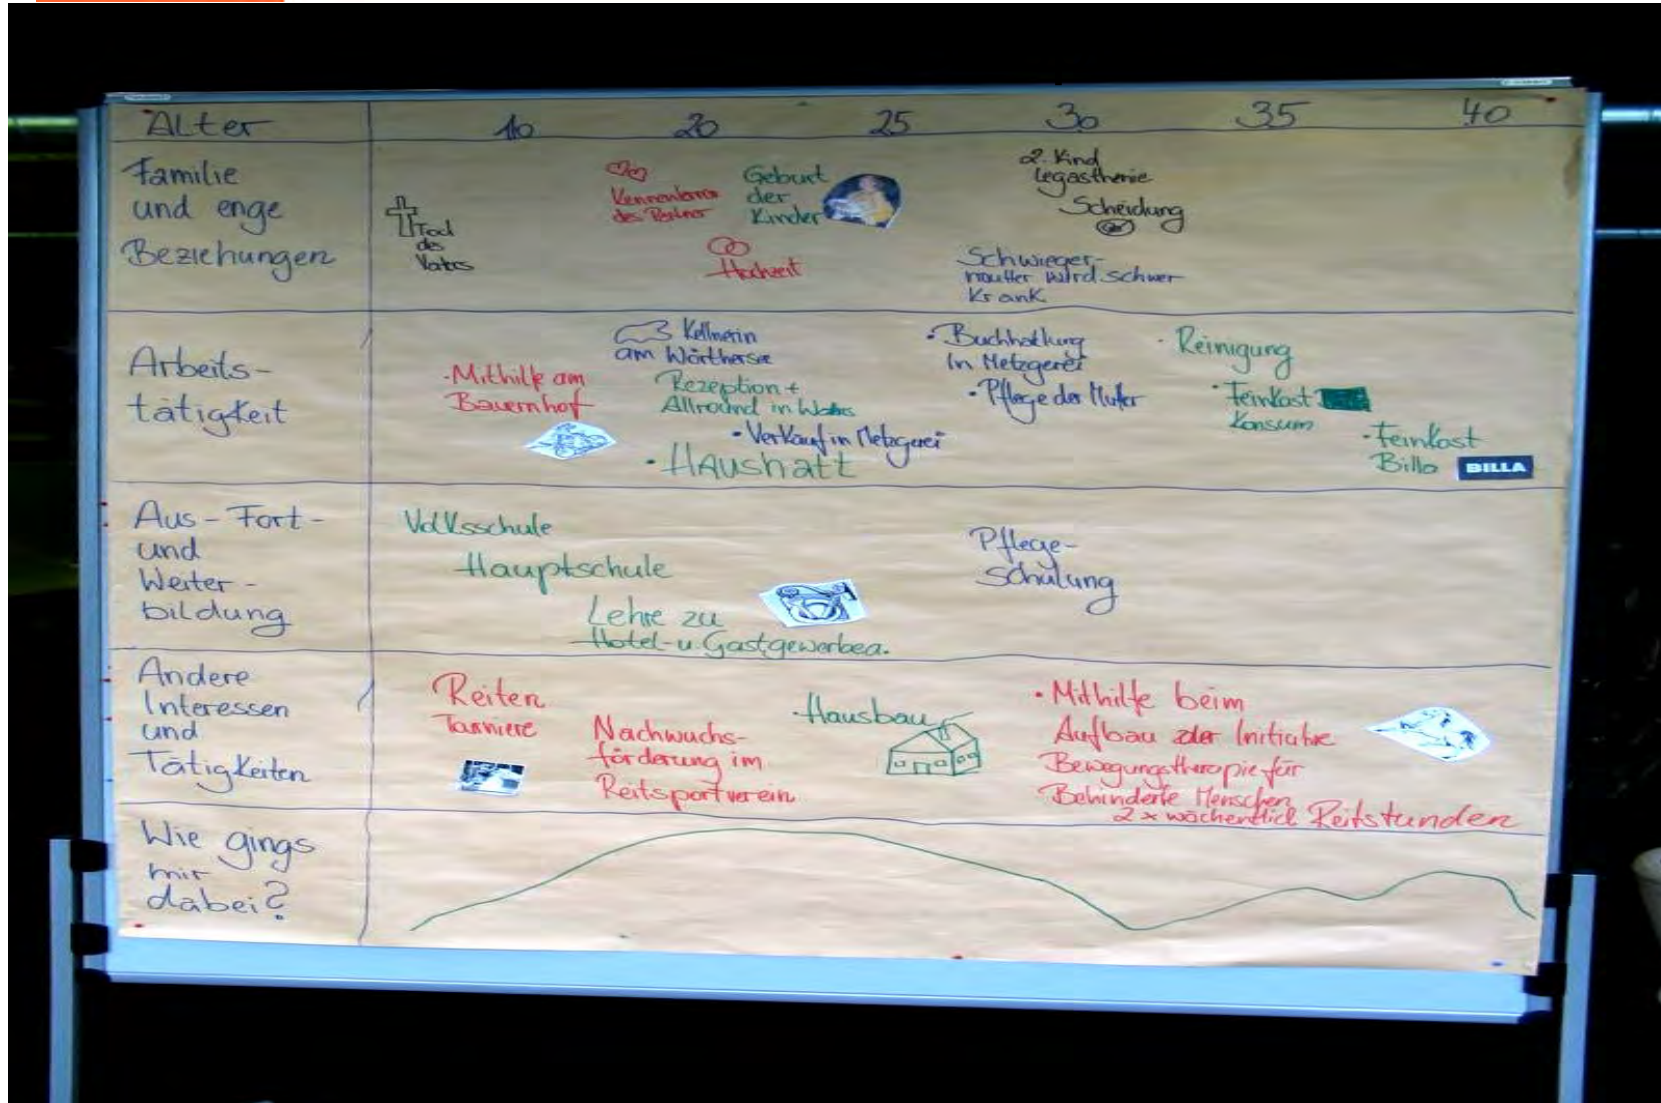 Alter 10 20 25 30 35 40
Familie
und enge
Beziehungen
Tod
des
Vaters
Kennenlernen
des Partner
Hochzeit
Geburt
der
Kinder
2. Kind
Legasthenie
Scheidung
Schwieger-
mutter wird schwer
Krank
Arbeits-
tätigkeit
- Mithilfe am
Bauernhof
Kellnerin
am Wörthersee
Rezeption +
Allround in
• Verkauf in Metzgerei
• Haushalt
• Buchhaltung
in Metzgerei
• Pflege der Mutter
• Reinigung
• Feinkost
Konsum
• Feinkost
Billa BILLA
Aus- Fort-
und
Weiter-
bildung
Volksschule
Hauptschule
Lehre zu
Hotel- u. Gastgewerbea.
Pflege-
schulung
Andere
Interessen
und
Tätigkeiten
Reiten
Turniere
Nachwuchs-
förderung im
Reitsportverein
Hausbau
• Mithilfe beim
Aufbau der Initiative
Bewegungstherapie für
Behinderte Menschen
2 x wöchentlich Reitstunden
Wie gings
mir
dabei?